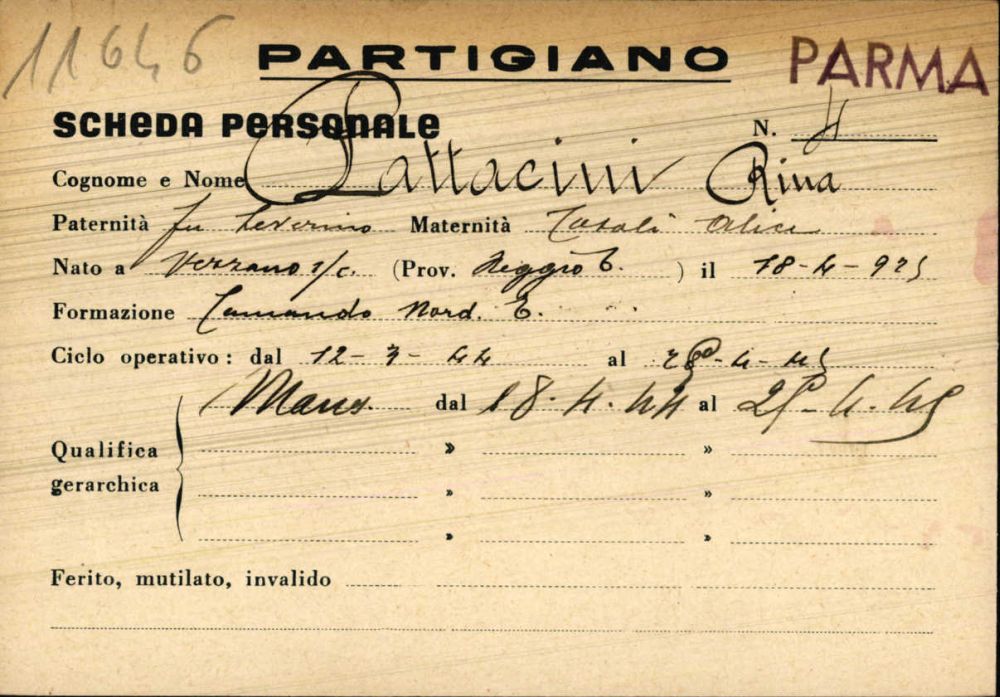 11646 PARTIGIANO PARMA
SCHEDA PERSONALE N. 4
Cognome e Nome Pattacini Rina
Paternità fu Severino Maternità Casali Alice
Nato a Vezzano s/c. (Prov. Reggio E. ) il 18-4-925
Formazione Comando Nord. E.
Ciclo operativo : dal 12-3-44 al 25-4-45
Qualifica gerarchica
dal 18.4.44 al 25-4.45
» »
» »
» »
Ferito, mutilato, invalido